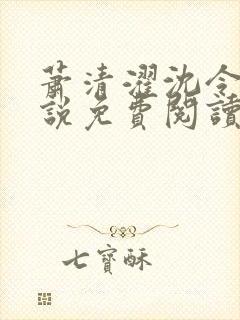 蕭清濯沈令
說免費閱讀
七寶酥